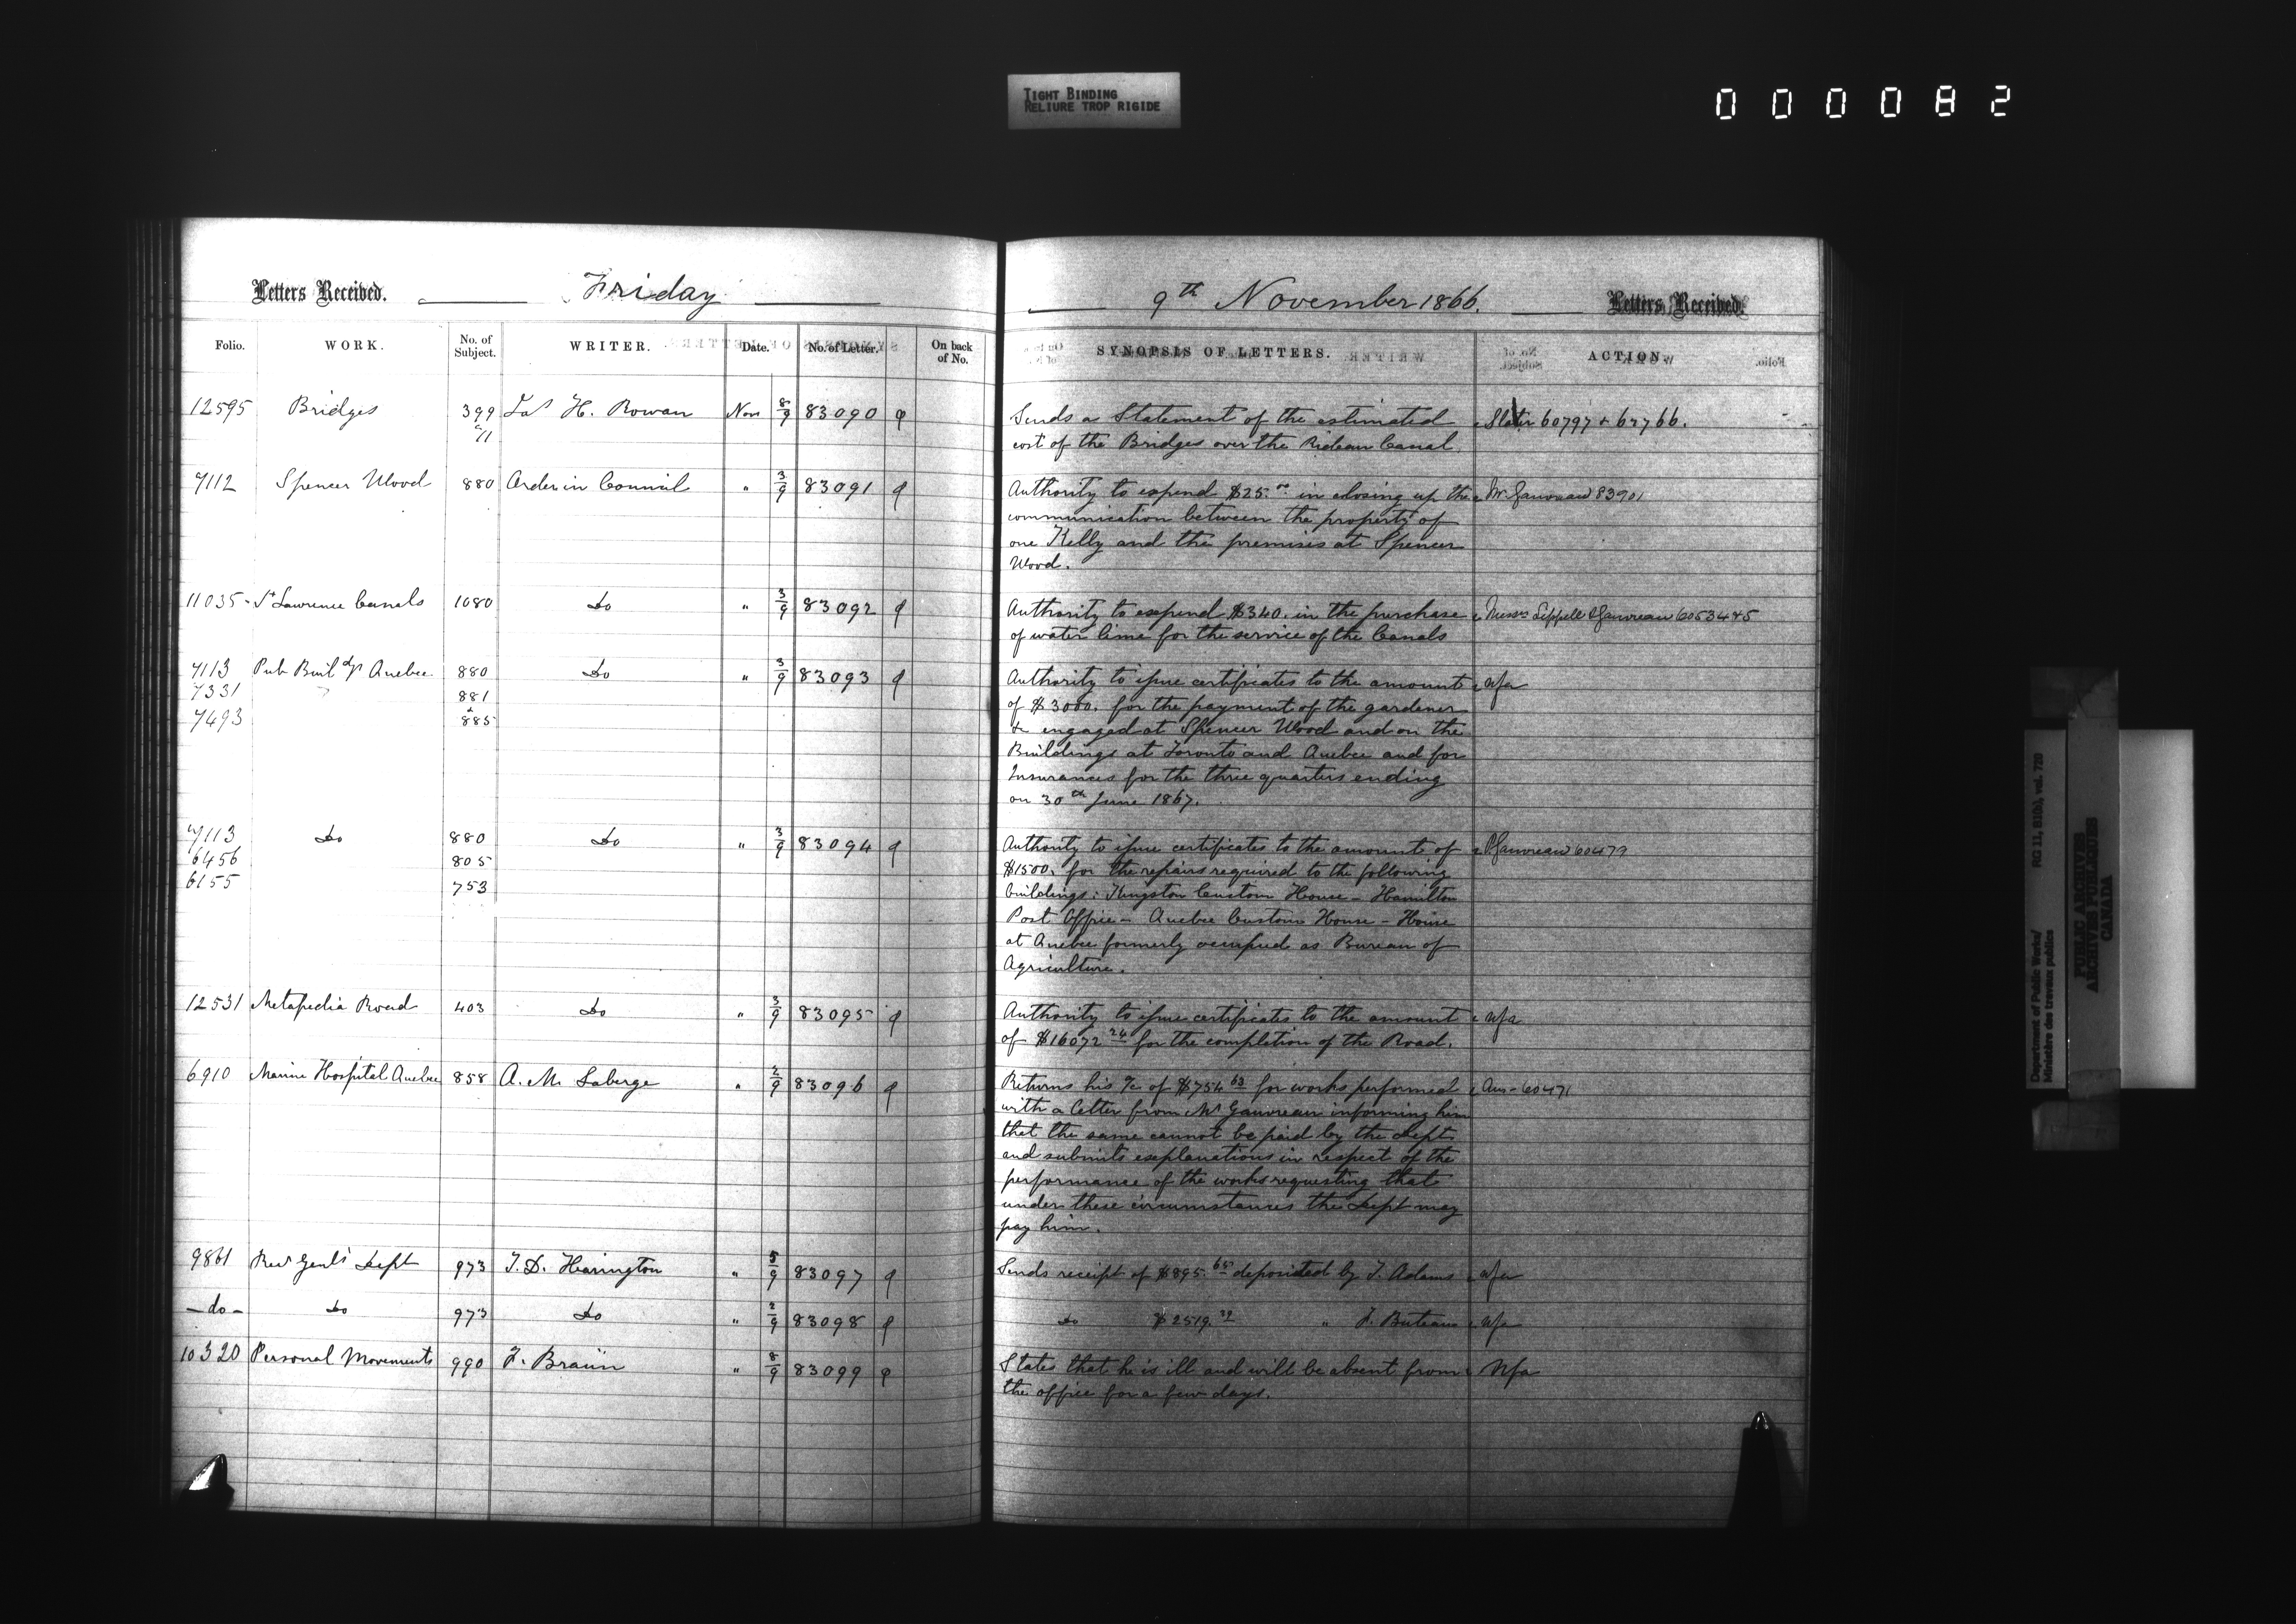 TIGHT BINDING
RELIURE TROP RIGIDE
0000082
Letters Received. Friday
Folio. WORK. No. of Subject. WRITER. Date. No. of Letter. On back of No.
12595 Bridges 399 Jas H. Rowan Nov 8/9 83090
11
7112 Spencer Wood 880 Order in Council " 3/9 83091
11035 - St Lawrence Canals 1080 Do " 3/9 83092
7113 Pub Buildgs Quebec 880 Do " 3/9 83093
7331 881
7493 & 885
7113 Do 880 Do " 3/9 83094
6456 805
6155 753
12531 Metapedia Road 403 Do " 3/9 83095
6910 Marine Hospital Quebec 858 A. M. Laberge " 2/9 83096
9861 Recr Genl's Dept 973 T. D. Harington " 5/9 83097
- do - Do 973 Do " 2/9 83098
10320 Personal Movements 990 F. Braün " 8/9 83099
9th November 1866. Letters Received.
SYNOPSIS OF LETTERS. ACTION.
Sends a Statement of the estimated Slater 60797 + 62766.
cost of the Bridges over the Rideau Canal.
Authority to expend $25.00 in closing up the Mr Gauvreau 83901
communication between the property of
one Kelly and the premises at Spencer
Wood.
Authority to expend $340. in the purchase Messrs Sippell & Gauvreau 60534&5
of water lime for the service of the Canals
Authority to issue certificates to the amount Nfa
of $3000. for the payment of the gardener
&c engaged at Spencer Wood and on the
Buildings at Toronto and Quebec and for
Insurances for the three quarters ending
on 30th June 1867.
Authority to issue certificates to the amount of P. Gauvreau 60479
$1500. for the repairs required to the following
buildings: Kingston Custom House - Hamilton
Post Office - Quebec Custom House - House
at Quebec formerly occupied as Bureau of
Agriculture.
Authority to issue certificates to the amount Nfa
of $16072 24 for the completion of the Road.
Returns his a/c of $754 63 for works performed Ans - 60471
with a letter from Mr Gauvreau informing him
that the same cannot be paid by the Dept
and submits explanations in respect of the
performance of the works requesting that
under these circumstances the Dept may
pay him.
Sends receipt of $895. 65 deposited by T. Adams Nfa
Do $2519. 39 " F. Buteau Nfa
States that he is ill and will be absent from Nfa
the office for a few days.
Department of Public Works/ RG 11, B1(b), vol. 720
Ministère des travaux publics
PUBLIC ARCHIVES
ARCHIVES PUBLIQUES
CANADA